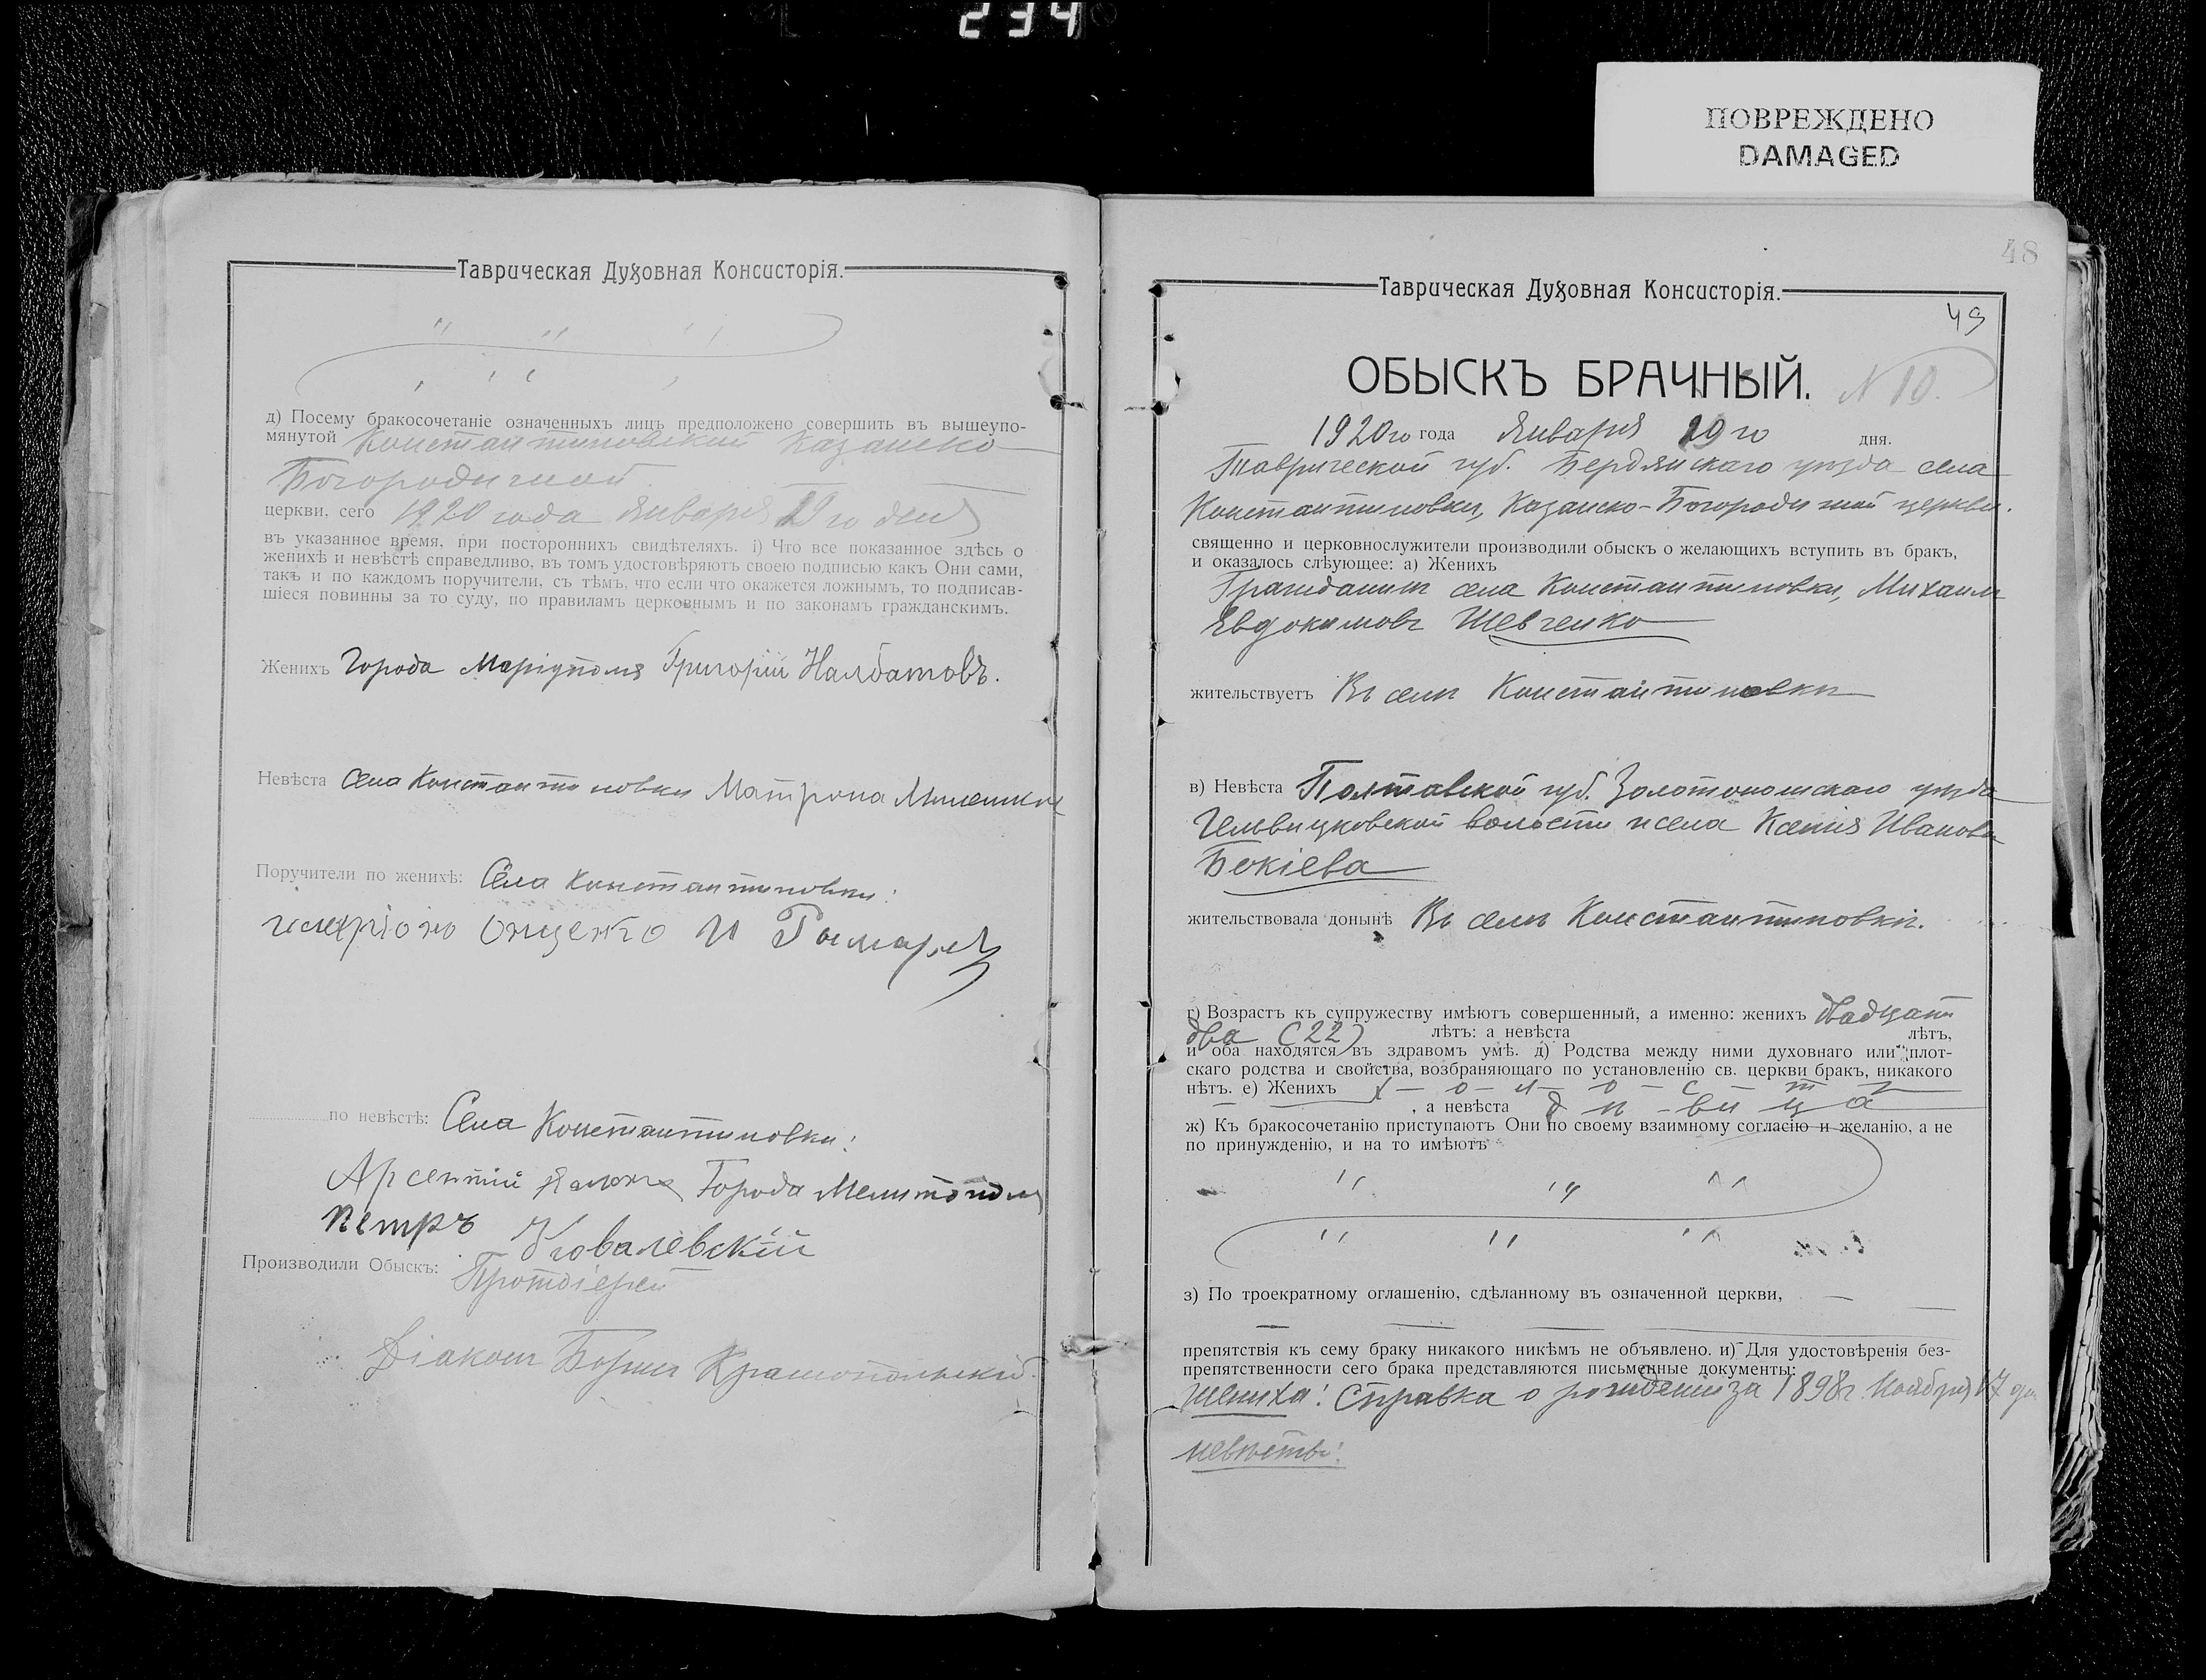 234
ПОВРЕЖДЕНО
DAMAGED
Таврическая Духовная Консисторія.
д) Посему бракосочетаніе означенныхъ лицъ предположено совершить въ вышеупо-
мянутой Константиновской Казанско
Богородичной
церкви, сего 1920 года Января 19 го дня
въ указанное время, при постороннихъ свидѣтеляхъ. і) Что все показанное здѣсь о
женихѣ и невѣстѣ справедливо, въ томъ удостовѣряютъ своею подписью какъ Они сами,
такъ и по каждомъ поручители, съ тѣмъ, что если что окажется ложнымъ, то подписав-
шіеся повинны за то суду, по правиламъ церковнымъ и по законамъ гражданскимъ.
Женихъ Города Маріуполя Григорій Налбатовъ.
Невѣста Села Константиновки Матрона
Поручители по женихѣ: Села Константиновки:
Онщенко и
по невѣстѣ: Села Константиновки:
Арсентій Города Мелитополя
Петръ Ковалевскій
Производили Обыскъ: Протоіерей
Діаконъ Борисъ
48
Таврическая Духовная Консисторія.
49
ОБЫСКЪ БРАЧНЫЙ. N 10.
1920 го года Января 19 го дня.
Таврической губ. Бердянскаго уѣзда села
Константиновки, Казанско-Богородичной церкви.
священно и церковнослужители производили обыскъ о желающихъ вступить въ бракъ,
и оказалось слѣующее: а) Женихъ
Гражданинъ села Константиновки, Михаилъ
Евдокимовъ Шевченко
жительствуетъ Въ селѣ Константиновкѣ
в) Невѣста Полтавской губ. Золотоношскаго уѣзда
волости и села Ксенія Иванова
Бокіева
жительствовала донынѣ Въ селѣ Константиновкѣ.
г) Возрастъ къ супружеству имѣютъ совершенный, а именно: женихъ двадцать
два (22) лѣтъ: а невѣста лѣтъ,
и оба находятся въ здравомъ умѣ. д) Родства между ними духовнаго или плот-
скаго родства и свойства, возбраняющаго по установленію св. церкви бракъ, никакого
нѣтъ. е) Женихъ х-о-л-о-с-т-ъ
, а невѣста д ѣ-ви ц а
ж) Къ бракосочетанію приступаютъ Они по своему взаимному согласію и желанію, а не
по принужденію, и на то имѣютъ
з) По троекратному оглашенію, сдѣланному въ означенной церкви,
препятствія къ сему браку никакого никѣмъ не объявлено. и) Для удостовѣренія без-
препятственности сего брака представляются письменные документы:
Жениха: Справка о рожденіи за 1898 г. Ноября 17 дня
невѣсты: